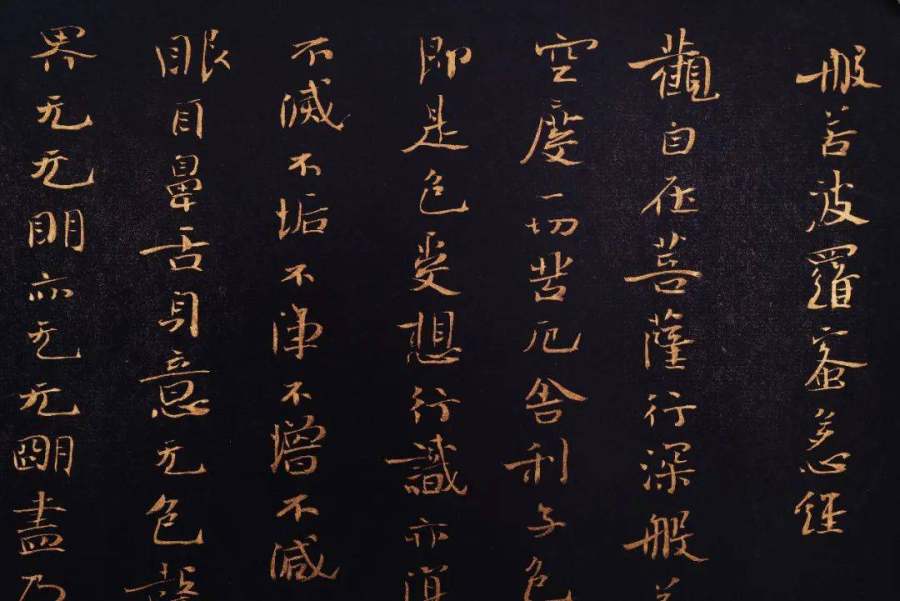 般若波羅蜜多心經
觀自在菩薩行深般若
空度一切苦厄舍利子色
即是色受想行識亦復
不滅不垢不淨不增不減
眼耳鼻舌身意无色聲
界无无明亦无无明盡乃